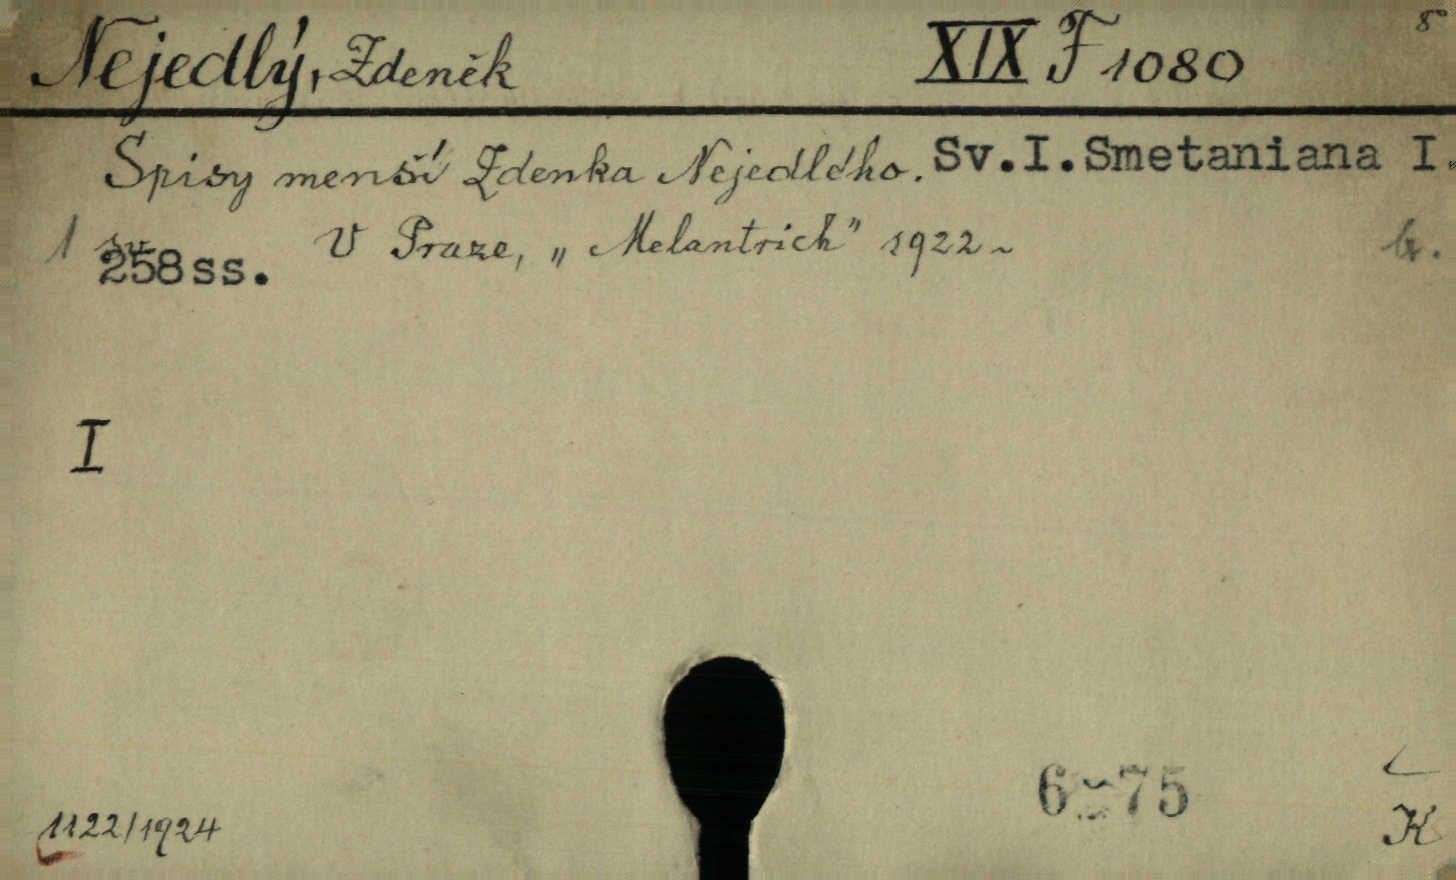 Nejedlý, Zdeněk XIX F 1080 8°
Spisy menší Zdenka Nejedlého. Sv.I.Smetaniana I.
1 sv. V Praze, „Melantrich" 1922 ~
258ss.
I
1122/1924
K